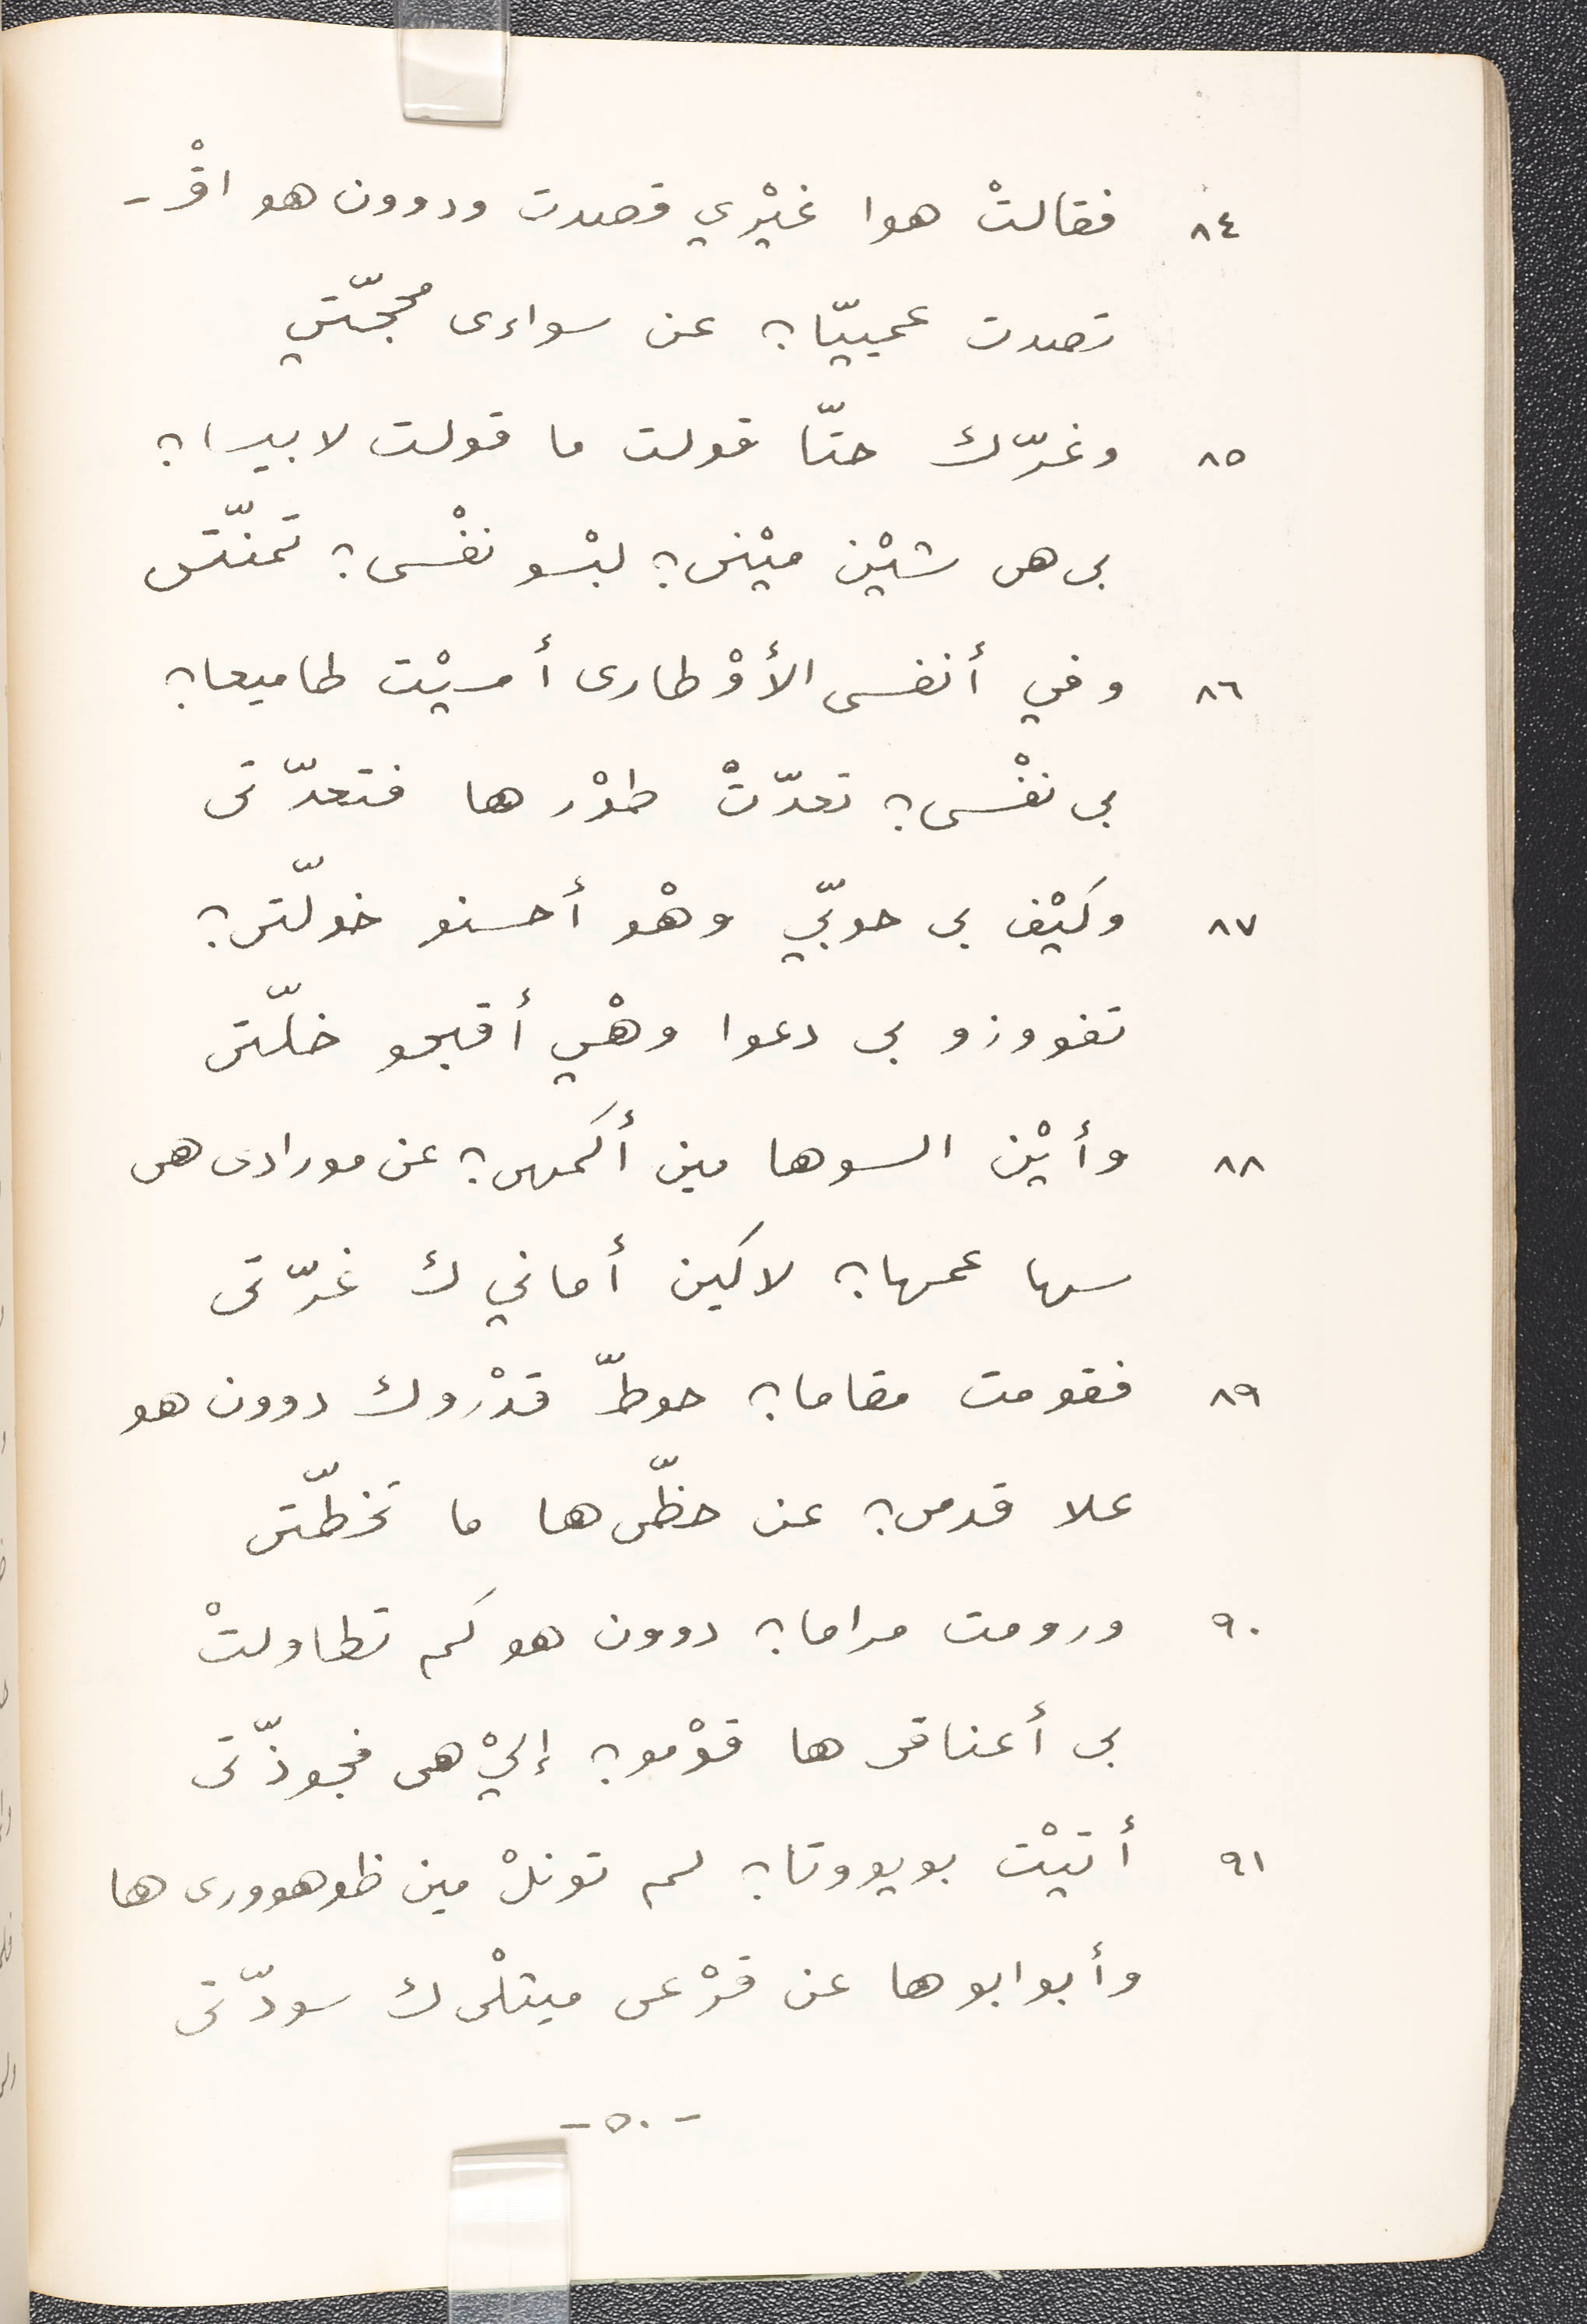 ٨٤ فقالتْ هوا غيْري قصدت ودوون هو اقْـ -
تصدت عميیّا؟ عن سواءى محجّتي
٨٥ وغرّك حتّا قولت ما قولت لابيسا؟
بى هى شيْن ميْنى؟ لبْسو نفْسى؟ تمنّتى
٨٦ وفي أنفسى الأوْطارى أمسيْت طاميعا؟
بى نفْسى؟ تعدّتْ طوْرها فتعدّتى
٨٧ وكيْف بى حوبّي وهْو أحسنو خولّتى؟
تفووزو بى دعوا وهْي أقبحو خلّتى
٨٨ وأيْن السوها مين أكمهى؟ عن مورادى هى
سها عمها؟ لاكين أماني ك غرّتى
٨٩ فقومت مقاما؟ حوطّ قدْروك دوون هو
علا قدمى؟ عن حظّى ها ما تخطّتى
٩٠ ورومت مراما؟ دوون هو كم تطاولتْ
بى أعناقى ها قوْمو؟ إليْ هى فجوذّتى
٩١ أتيْت بويووتا؟ لم تونلْ مين ظوهوورى ها
وأبوابو ها عن قرْعى ميتلْى ك سودّتى
- ٥٠ -